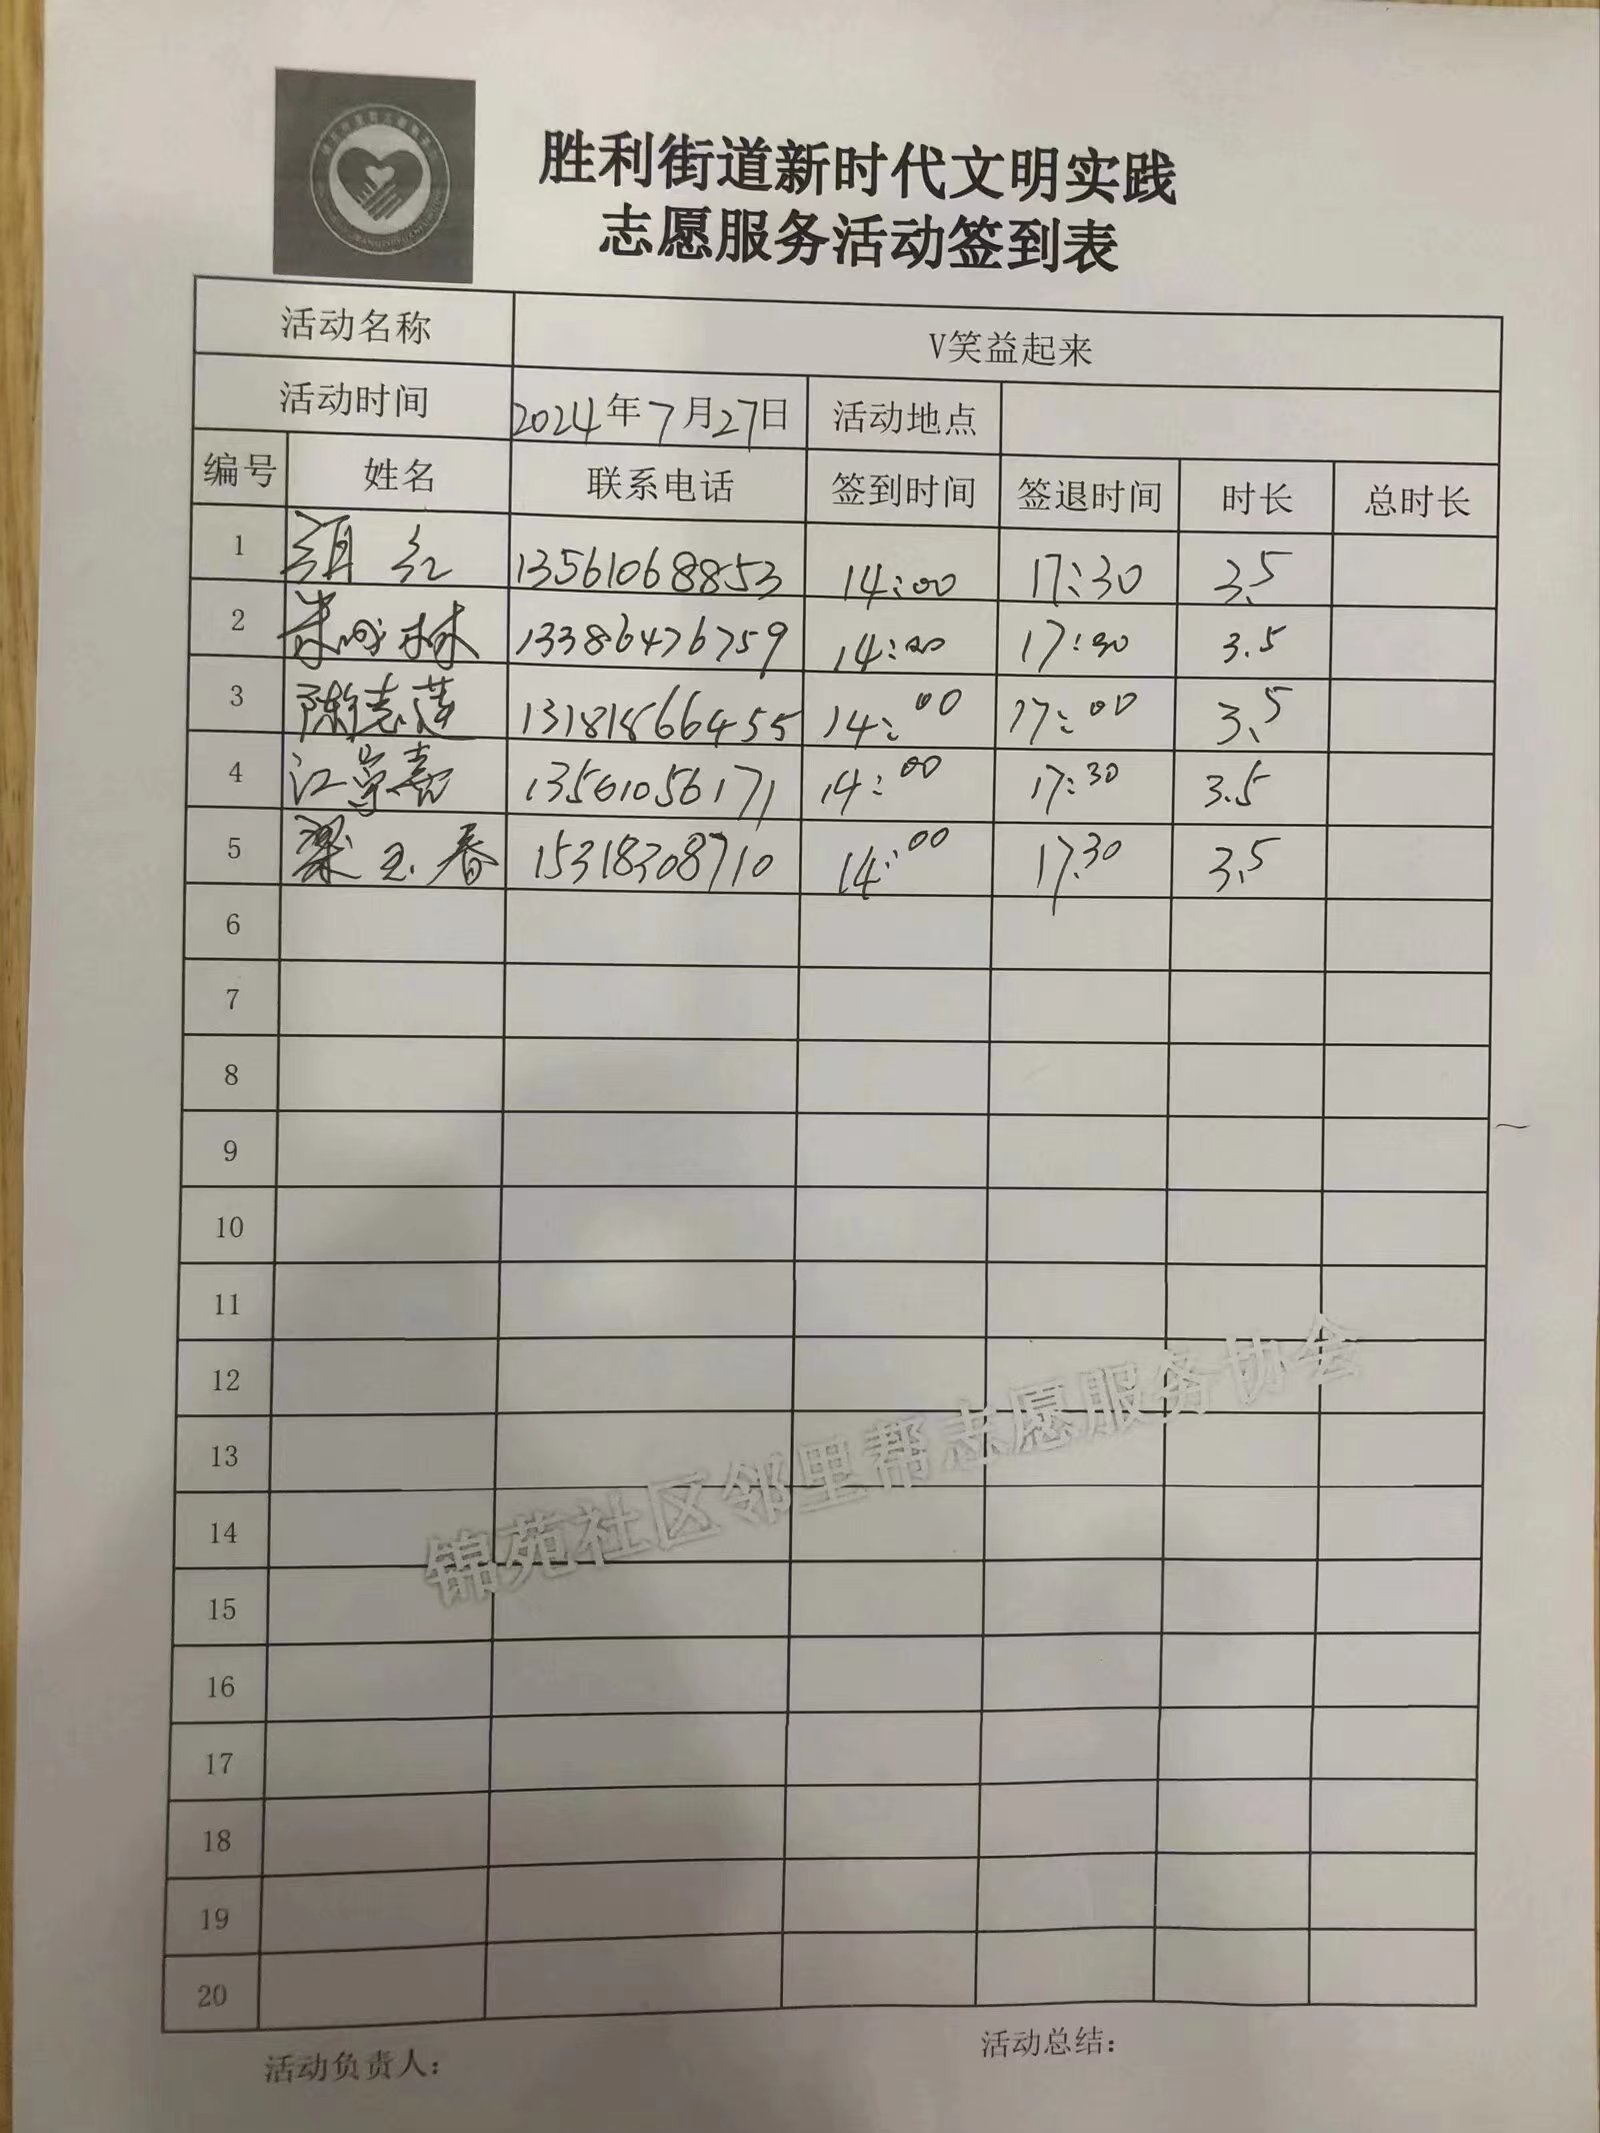 胜利街道新时代文明实践
志愿服务活动签到表
活动名称 V笑益起来
活动时间 2024年7月27日 活动地点
编号 姓名 联系电话 签到时间 签退时间 时长 总时长
1 红 13561068853 14:00 17:30 3.5
2 林 13386476759 14:00 17:30 3.5
3 陈德莲 13181866455 14:00 17:00 3.5
4 江 13561056171 14:00 17:30 3.5
5 梁玉春 15318308710 14:00 17:30 3.5
6
7
8
9
10
11
12
13
14
15
16
17
18
19
20
锦苑社区邻里帮志愿服务协会
活动负责人: 活动总结: